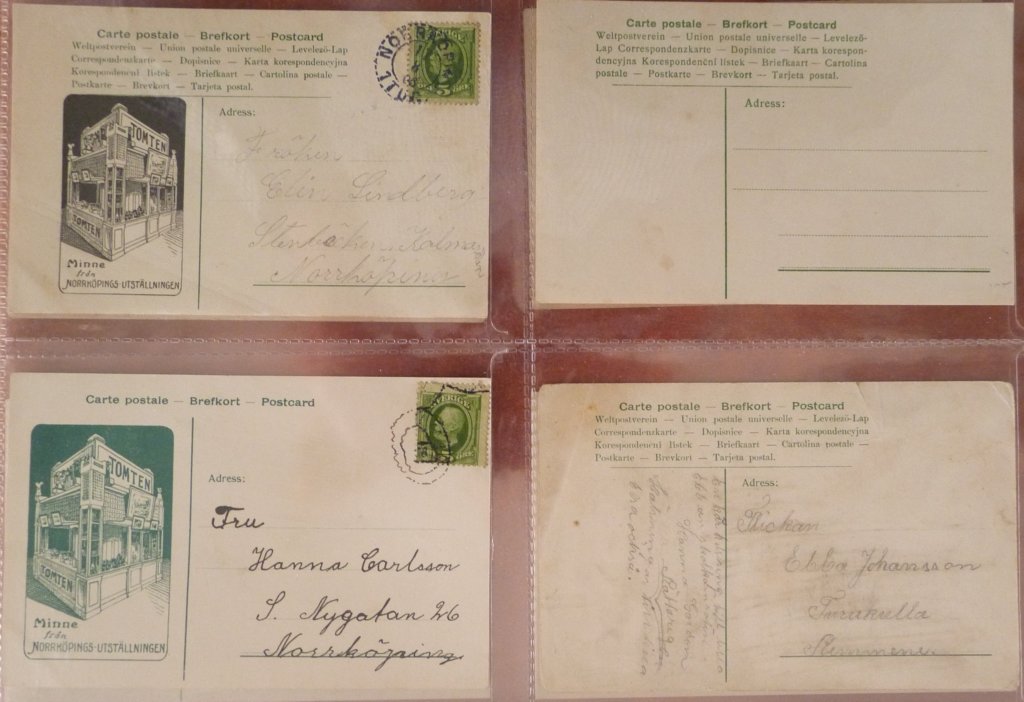 Carte postale — Brefkort — Postcard
Weltpostverein — Union postale universelle — Levelező-Lap
Correspondenzkarte — Dopisnice — Karta korespondencyjna
Korespondenční listek — Briefkaart — Cartolina postale —
Postkarte — Brevkort — Tarjeta postal.
SVERIGE
NORRKÖPING
TOMTEN
TOMTEN
Minne
från
NORRKÖPINGS-UTSTÄLLNINGEN
Adress:
Fröken
Elin Lindberg
Norrköping
Carte postale — Brefkort — Postcard
Weltpostverein — Union postale universelle — Levelező-
Lap Correspondenzkarte — Dopisnice — Karta korespon-
dencyjna Korespondenční listek — Briefkaart — Cartolina
postale — Postkarte — Brevkort — Tarjeta postal.
Adress:
Carte postale — Brefkort — Postcard
SVERIGE
TOMTEN
TOMTEN
Minne
från
NORRKÖPINGS-UTSTÄLLNINGEN
Adress:
Fru
Hanna Carlsson
S. Nygatan 26
Norrköping
Carte postale — Brefkort — Postcard
Weltpostverein — Union postale universelle — Levelező-Lap
Correspondenzkarte — Dopisnice — Karta korespondencyjna
Korespondenční listek — Briefkaart — Cartolina postale —
Postkarte — Brevkort — Tarjeta postal.
Adress:
Flickan
Ebba Johansson